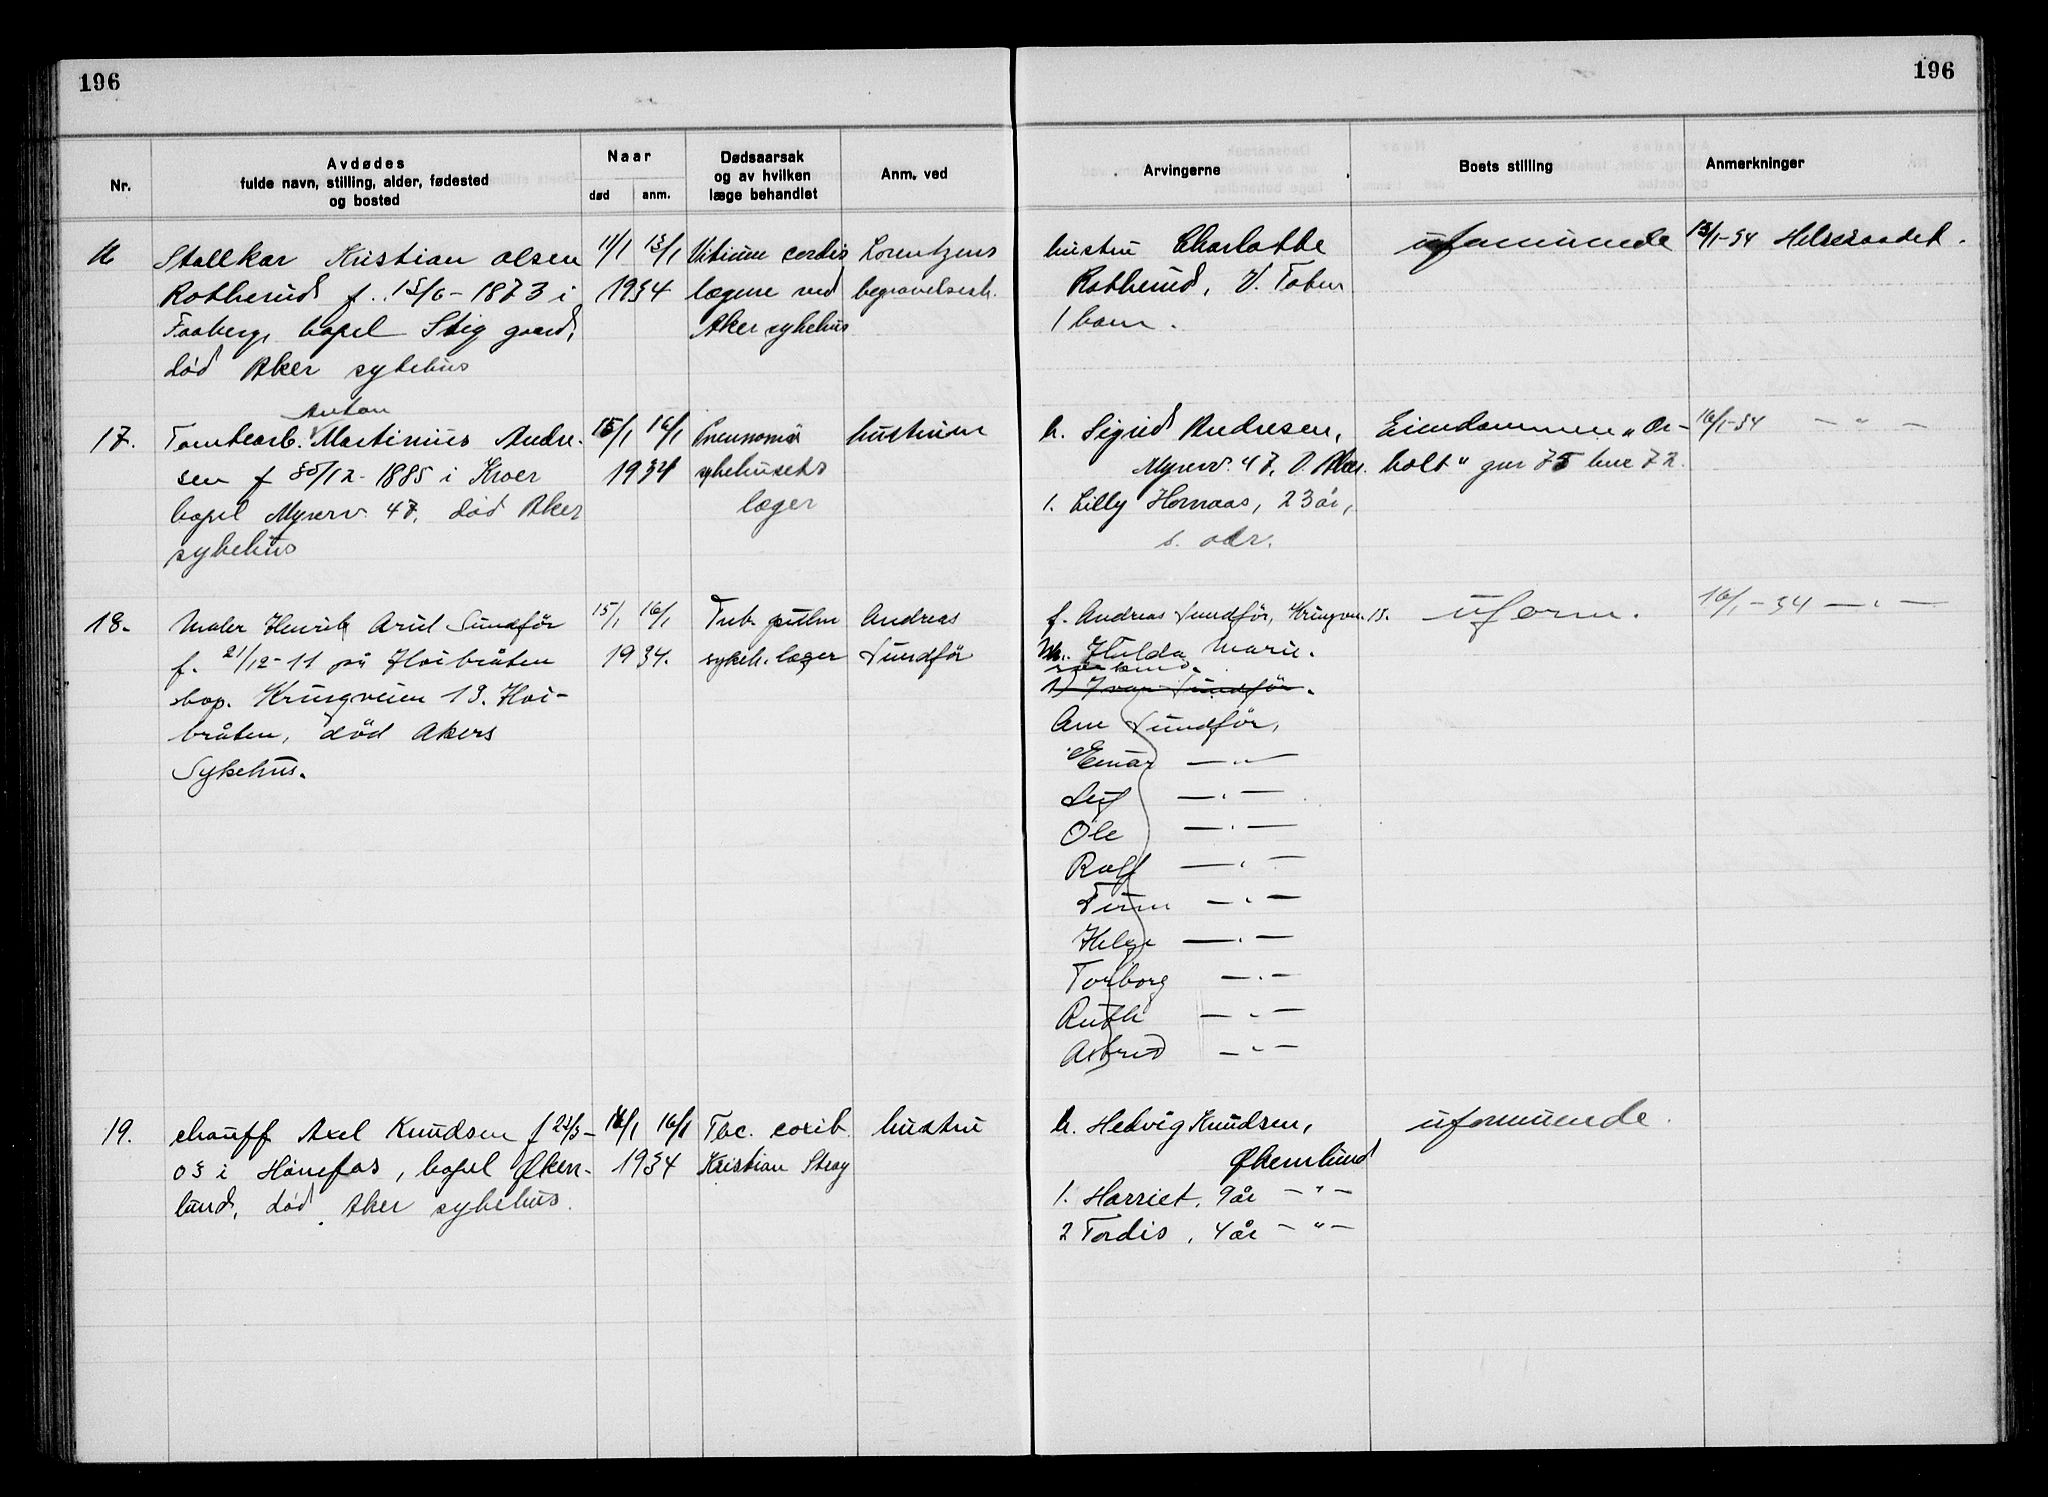 196
196
Nr.
Avdødes
fulde navn, stilling, alder, fødested
og bosted
Naar
død
anm.
Dødsaarsak
og av hvilken
læge behandlet
Anm. ved
Arvingerne
Boets stilling
Anmerkninger
Stallkar Kristian Olsen
Rotherud f. 15/6 - 1873 i
Faaberg, bopel Stig gaard,
død Aker sykehus
11/1 13/1
1934
Vitium cordis
lægene ved
Aker sykehus
Lorentzens
begravelsesb.
hustru Charlotte
Rotherud, V.
1 barn.
uformuende
13/1-34 Helseraadet.
17.
Anton
Tomtearb. Martinius Andre-
sen f 30/12-1885 i Kroer
bopel Myrerv. 47, død Aker
sykehus
15/1 16/1
1934
Pneumoni
sykehusets
læger
hustruen
h. Sigrid Andresen,
Myrerv. 47, V. Aker.
1. Lilly Hornaas, 23 år,
s. adr.
Eiendommen „Or-
holt" gnr 75 bnr 72.
16/1-34 — " —
18.
Maler Henrik Arid Sundför
f. 21/12-11 på Høibråten
bop. Kringveien 13. Høi-
bråten, død Akers
Sykehus.
15/1 16/1
1934.
Tub. pulm
sykeh. læger
Andreas
Sundför
f. Andreas Sundför, Kringvn. 13.
M. Hulda Marie.
søskend.
1) Ivar Sundför.
Arne Sundför,
Einar — " —
Leif — " —
Ole — " —
Rolf — " —
Finn — " —
Helge — " —
Torborg — " —
Ruth — " —
Astrid — " —
uform.
16/1-34 — " —
19.
chauff Axel Knudsen f 23/3-
03 i Hönefos, bopel Økern-
lund, død Aker sykehus.
14/1 16/1
1934
Tbc.
Kristian Stray
hustru
h. Hedvig Knudsen,
Økernlund
1. Harriet, 9 år — " —
2 Tordis, 4 år — " —
uformuende.